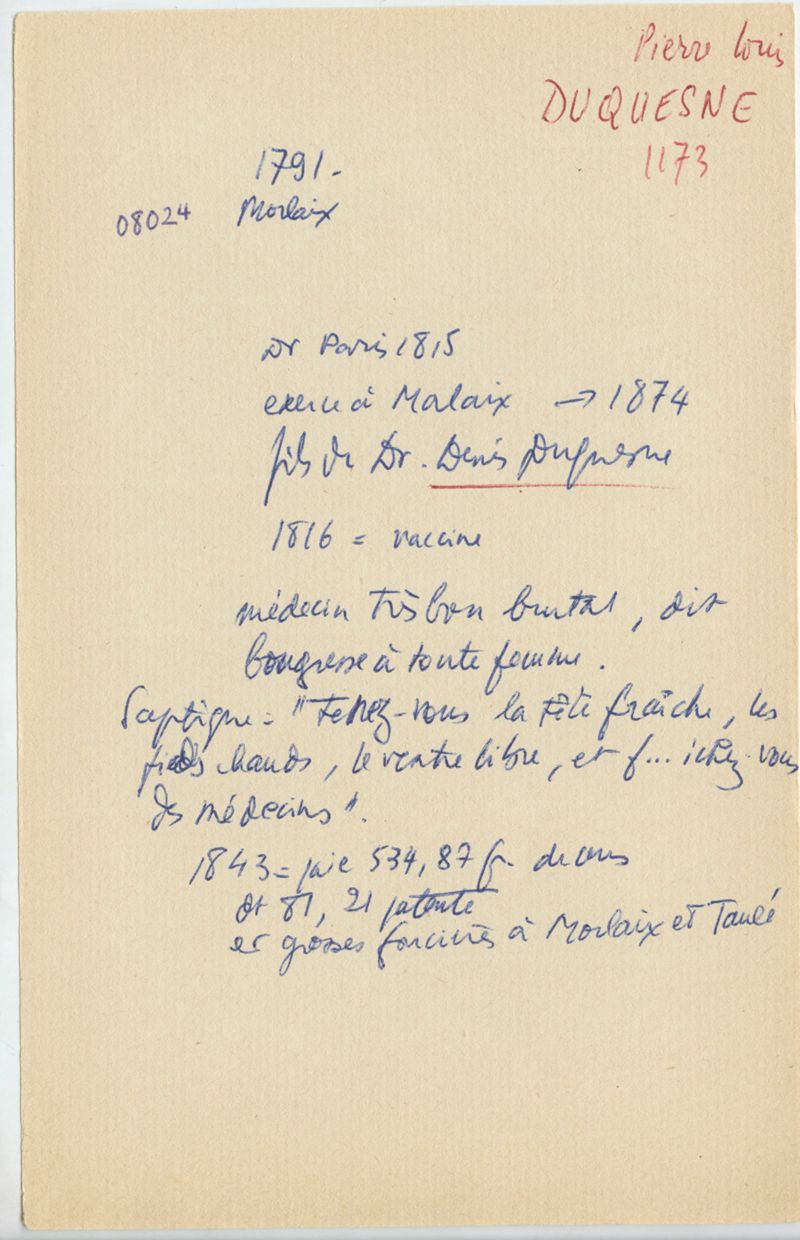 Pierre Louis
DUQUESNE
1173
1791-
08024 Morlaix
Dr Paris 1815
exerce à Morlaix → 1874
fils du Dr. Denis Duquesne
1816 = vaccine
médecin très bon brutal, dit
bougresse à toute femme.
"Tenez-vous la tête fraîche, les
pieds chauds, le ventre libre, et f... ichez-vous
des médecins".
1843 = paie 534,87 fr. de cens
dt 81,21 patente
et grosses à Morlaix et Taulé